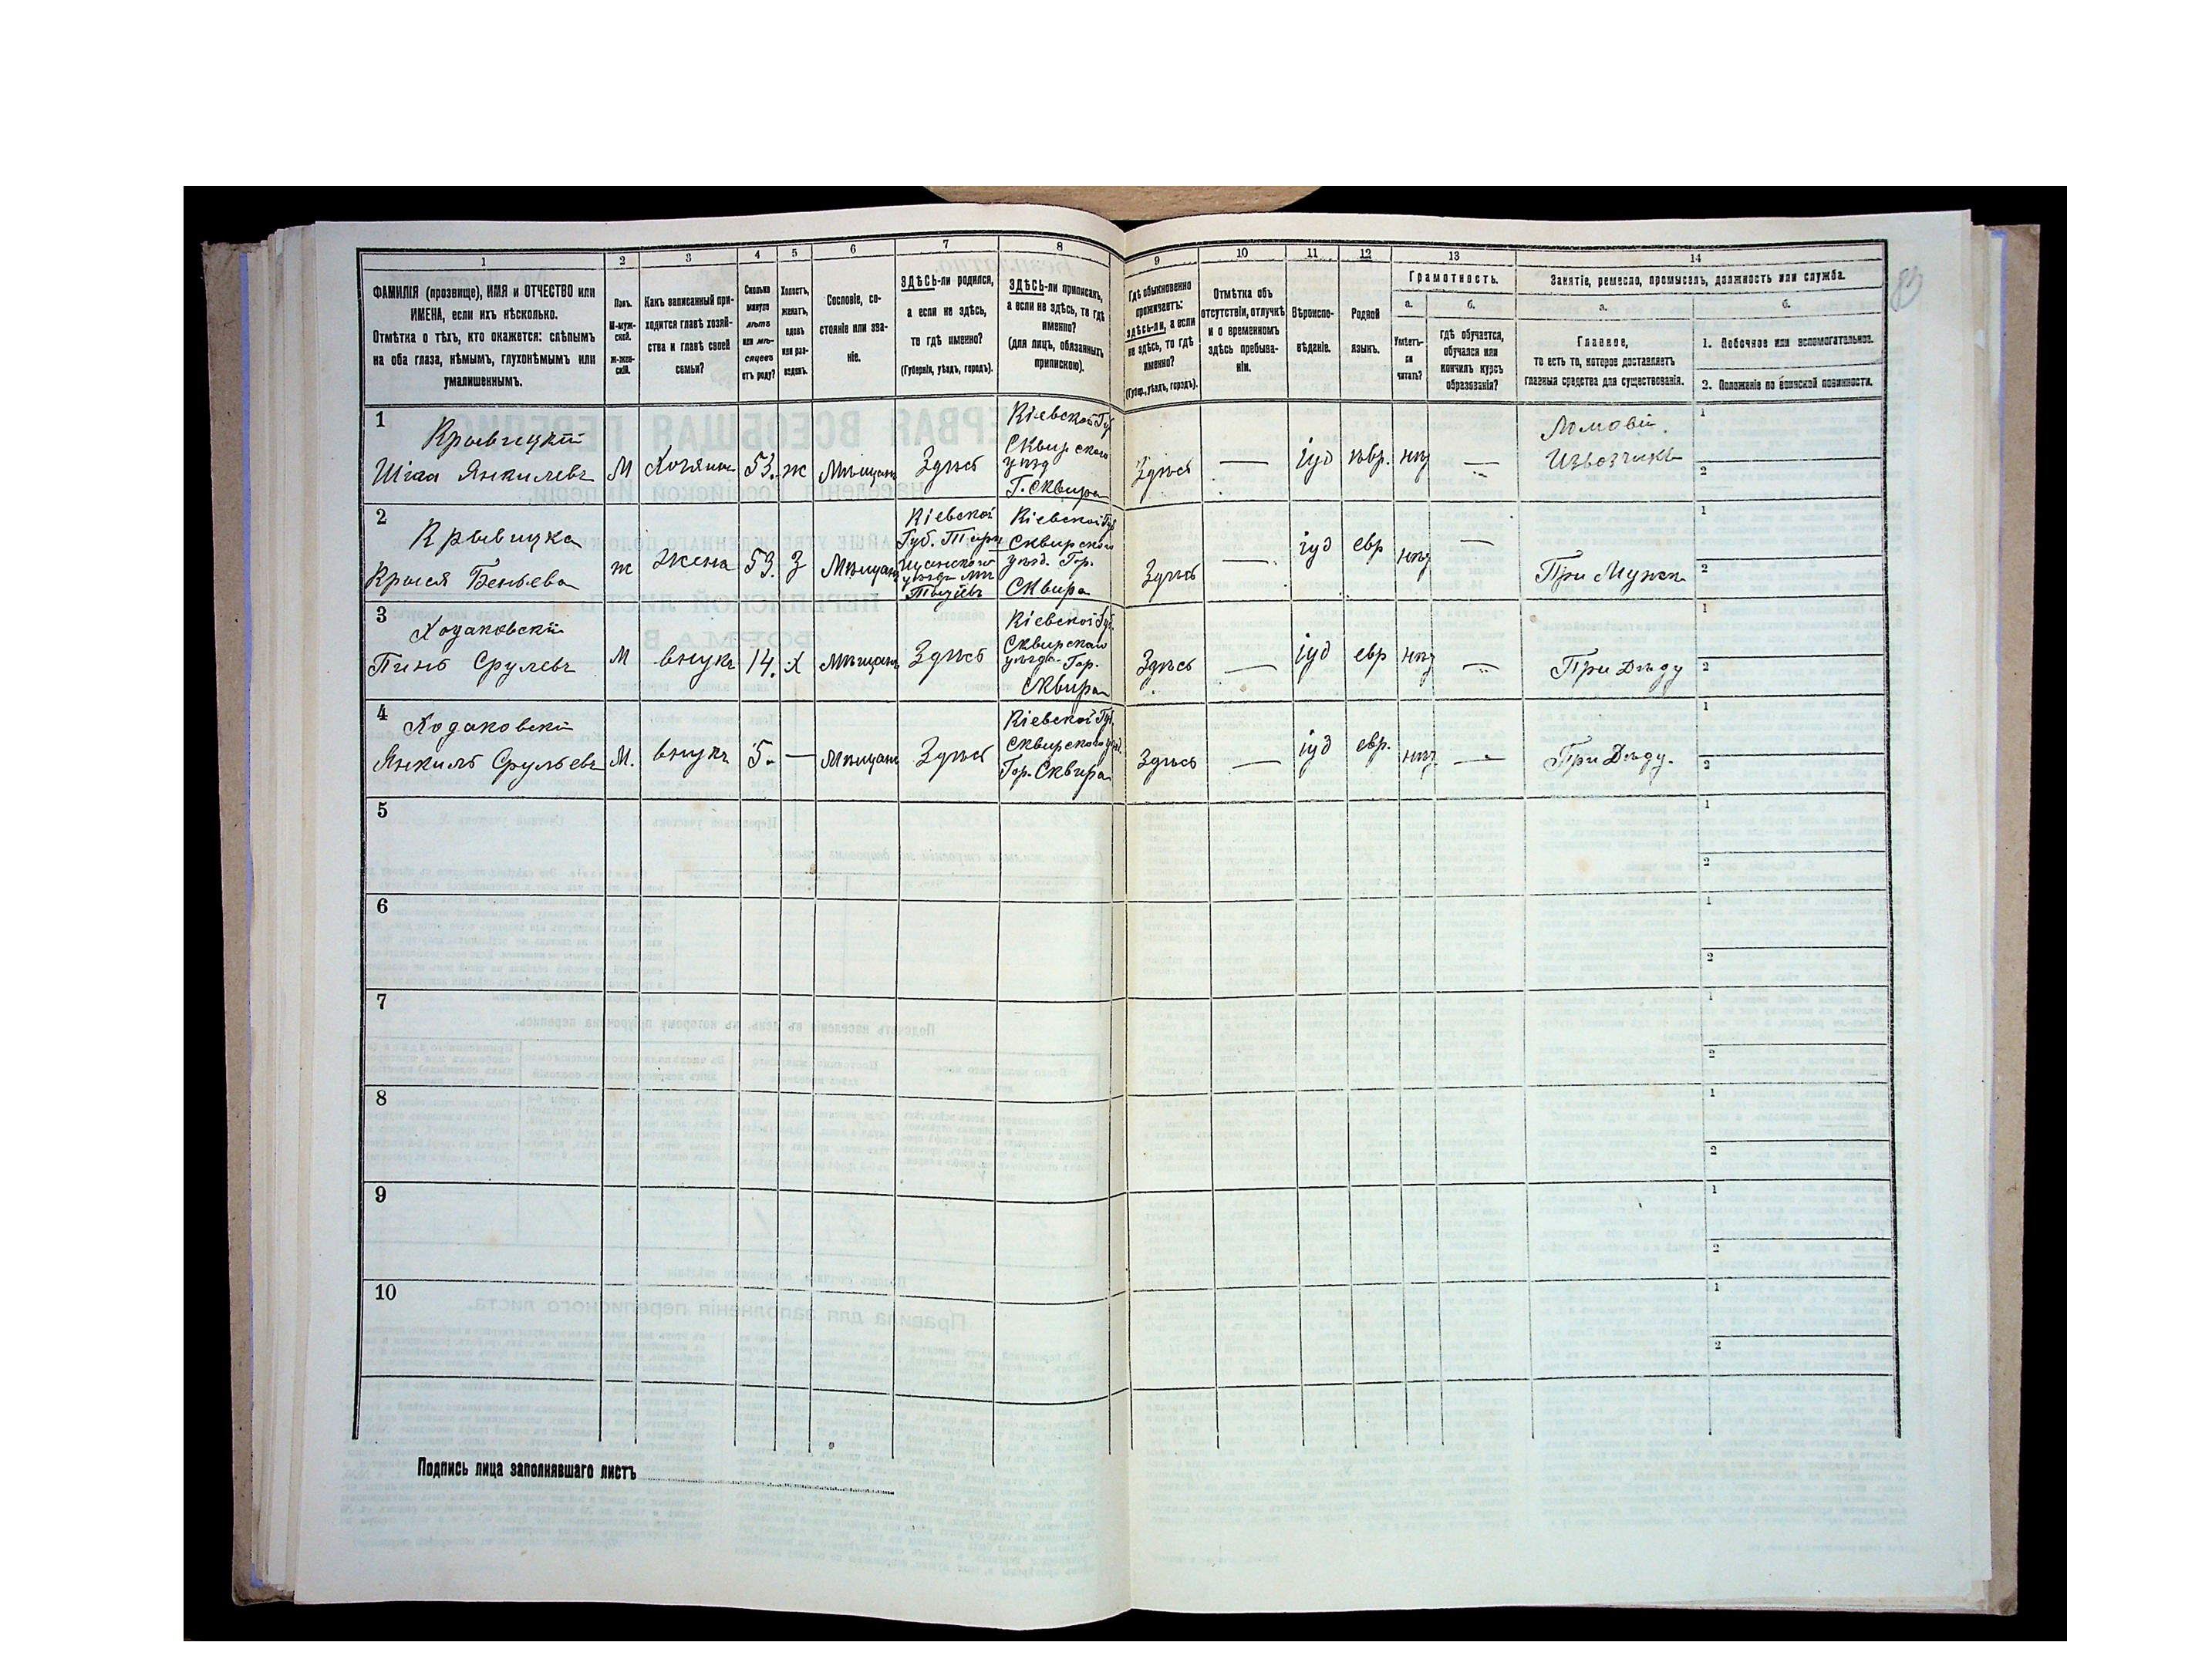 1 2 3 4 5 6 7 8 9 10 11 12 13 14
ФАМИЛІЯ (прозвище), ИМЯ и ОТЧЕСТВО или
ИМЕНА, если ихъ нѣсколько.
Отмѣтка о тѣхъ, кто окажется: слѣпымъ
на оба глаза, нѣмымъ, глухонѣмымъ или
умалишеннымъ.
Полъ.
М-муж-
ской.
ж-жен-
скій.
Какъ записанный при-
ходится главѣ хозяй-
ства и главѣ своей
семьи?
Сколько
минуло
лѣтъ
или мѣ-
сяцевъ
отъ роду?
Холостъ,
женатъ,
вдовъ
или раз-
веденъ.
Сословіе, со-
стояніе или зва-
ніе.
ЗДѢСЬ-ли родился,
а если не здѣсь,
то гдѣ именно?
(Губернія, уѣздъ, городъ).
ЗДѢСЬ-ли приписанъ,
а если не здѣсь, то гдѣ
именно?
(для лицъ, обязанныхъ
припискою).
Гдѣ обыкновенно
проживаетъ:
здѣсь-ли, а если
не здѣсь, то гдѣ
именно?
(Губер., уѣздъ, городъ).
Отмѣтка объ
отсутствіи, отлучкѣ
и о временномъ
здѣсь пребыва-
ніи.
Вѣроиспо-
вѣданіе.
Родной
языкъ.
Грамотность.
а.
Умѣетъ-
ли
читать?
б.
Гдѣ обучается,
обучался или
кончилъ курсъ
образованія?
Занятіе, ремесло, промыселъ, должность или служба.
а.
Главное,
то есть то, которое доставляетъ
главныя средства для существованія.
б.
1. Побочное или вспомогательное.
2. Положеніе по воинской повинности.
1
Крывицкій
Шгая Янкилевъ
М
Хозяинъ
53.
ж
Мѣщан
Здѣсь
Кіевской Губ
Сквирского
уѣзд
Г. Сквира
Здѣсь
—
іуд
євр.
нѣт
—
Ломовій
Извозчикъ
1
2
2
Крывицка
Крыся Беньева
ж
жена
53.
З
Мѣщан
Кіевской
Губ. Тара
щанского
уѣзда
Кіевской Губ
Сквирского
уѣзд. Гор.
Сквира
Здѣсь
—
іуд
евр
нѣт
—
При Мужѣ
1
2
3
Ходаковскій
Пинь Срулевъ
М
внукъ
14.
Х
Мѣщан
Здѣсь
Кіевской Губ.
Сквирского
уѣзда Гор.
Сквира
Здѣсь
—
іуд
евр
нѣт
—
При Дѣду
1
2
4
Ходаковскій
Янкиль Срульевъ
М.
внукъ
5.
—
Мѣщан
Здѣсь
Кіевской Губ.
Сквирского уѣзд.
Гор. Сквира
Здѣсь
—
іуд
евр.
нѣт
—
При Дѣду.
1
2
5
1
2
6
1
2
7
1
2
8
1
2
9
1
2
10
1
2
Подпись лица заполнявшаго листъ